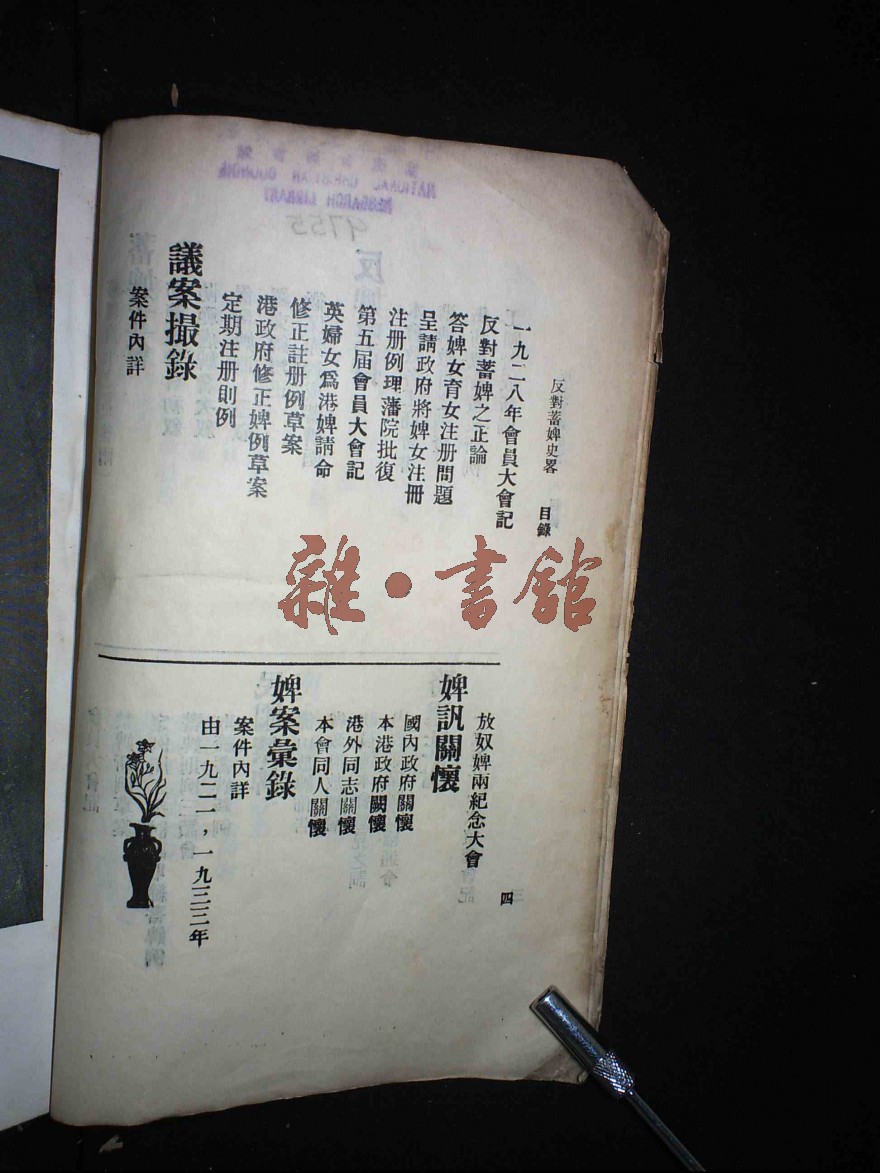 反對蓄婢史畧　目錄　四
一九二八年會員大會記
反對蓄婢之正論
答婢女育女注册問題
呈請政府將婢女注冊
注册例理藩院批復
第五届會員大會記
英婦女爲港婢請命
修正註册例草案
港政府修正婢例草案
定期注册則例
議案撮錄
案件內詳
放奴婢兩紀念大會
婢訊關懷
國內政府關懷
本港政府關懷
港外同志關懷
本會同人關懷
婢案彙錄
案件內詳
由一九二一，一九三三年
雜·書館
NATIONAL CHRISTIAN COUNCIL
RESEARCH LIBRARY
4755